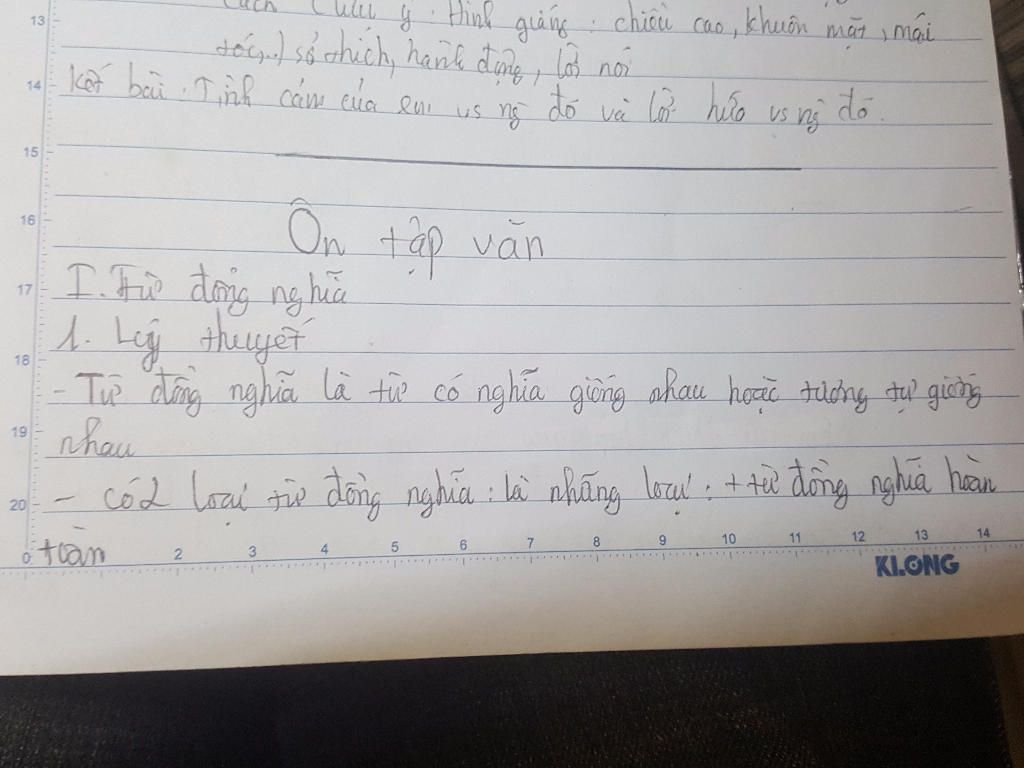 cách (lưu ý: hình giáng: chiều cao, khuôn mặt, mái
tóc,..) sở thích, hành động, lời nói
Kết bài: Tình cảm của em vs ng đó và lời hứa vs ng đó.
Ôn tập văn
I. Từ đồng nghĩa
1. Lý thuyết
- Từ đồng nghĩa là từ có nghĩa giống nhau hoặc tương tự giống
nhau
- có 2 loại từ đồng nghĩa: là những loại: + từ đồng nghĩa hoàn
toàn
KLONG
13
14
15
16
17
18
19
20
0 2 3 4 5 6 7 8 9 10 11 12 13 14